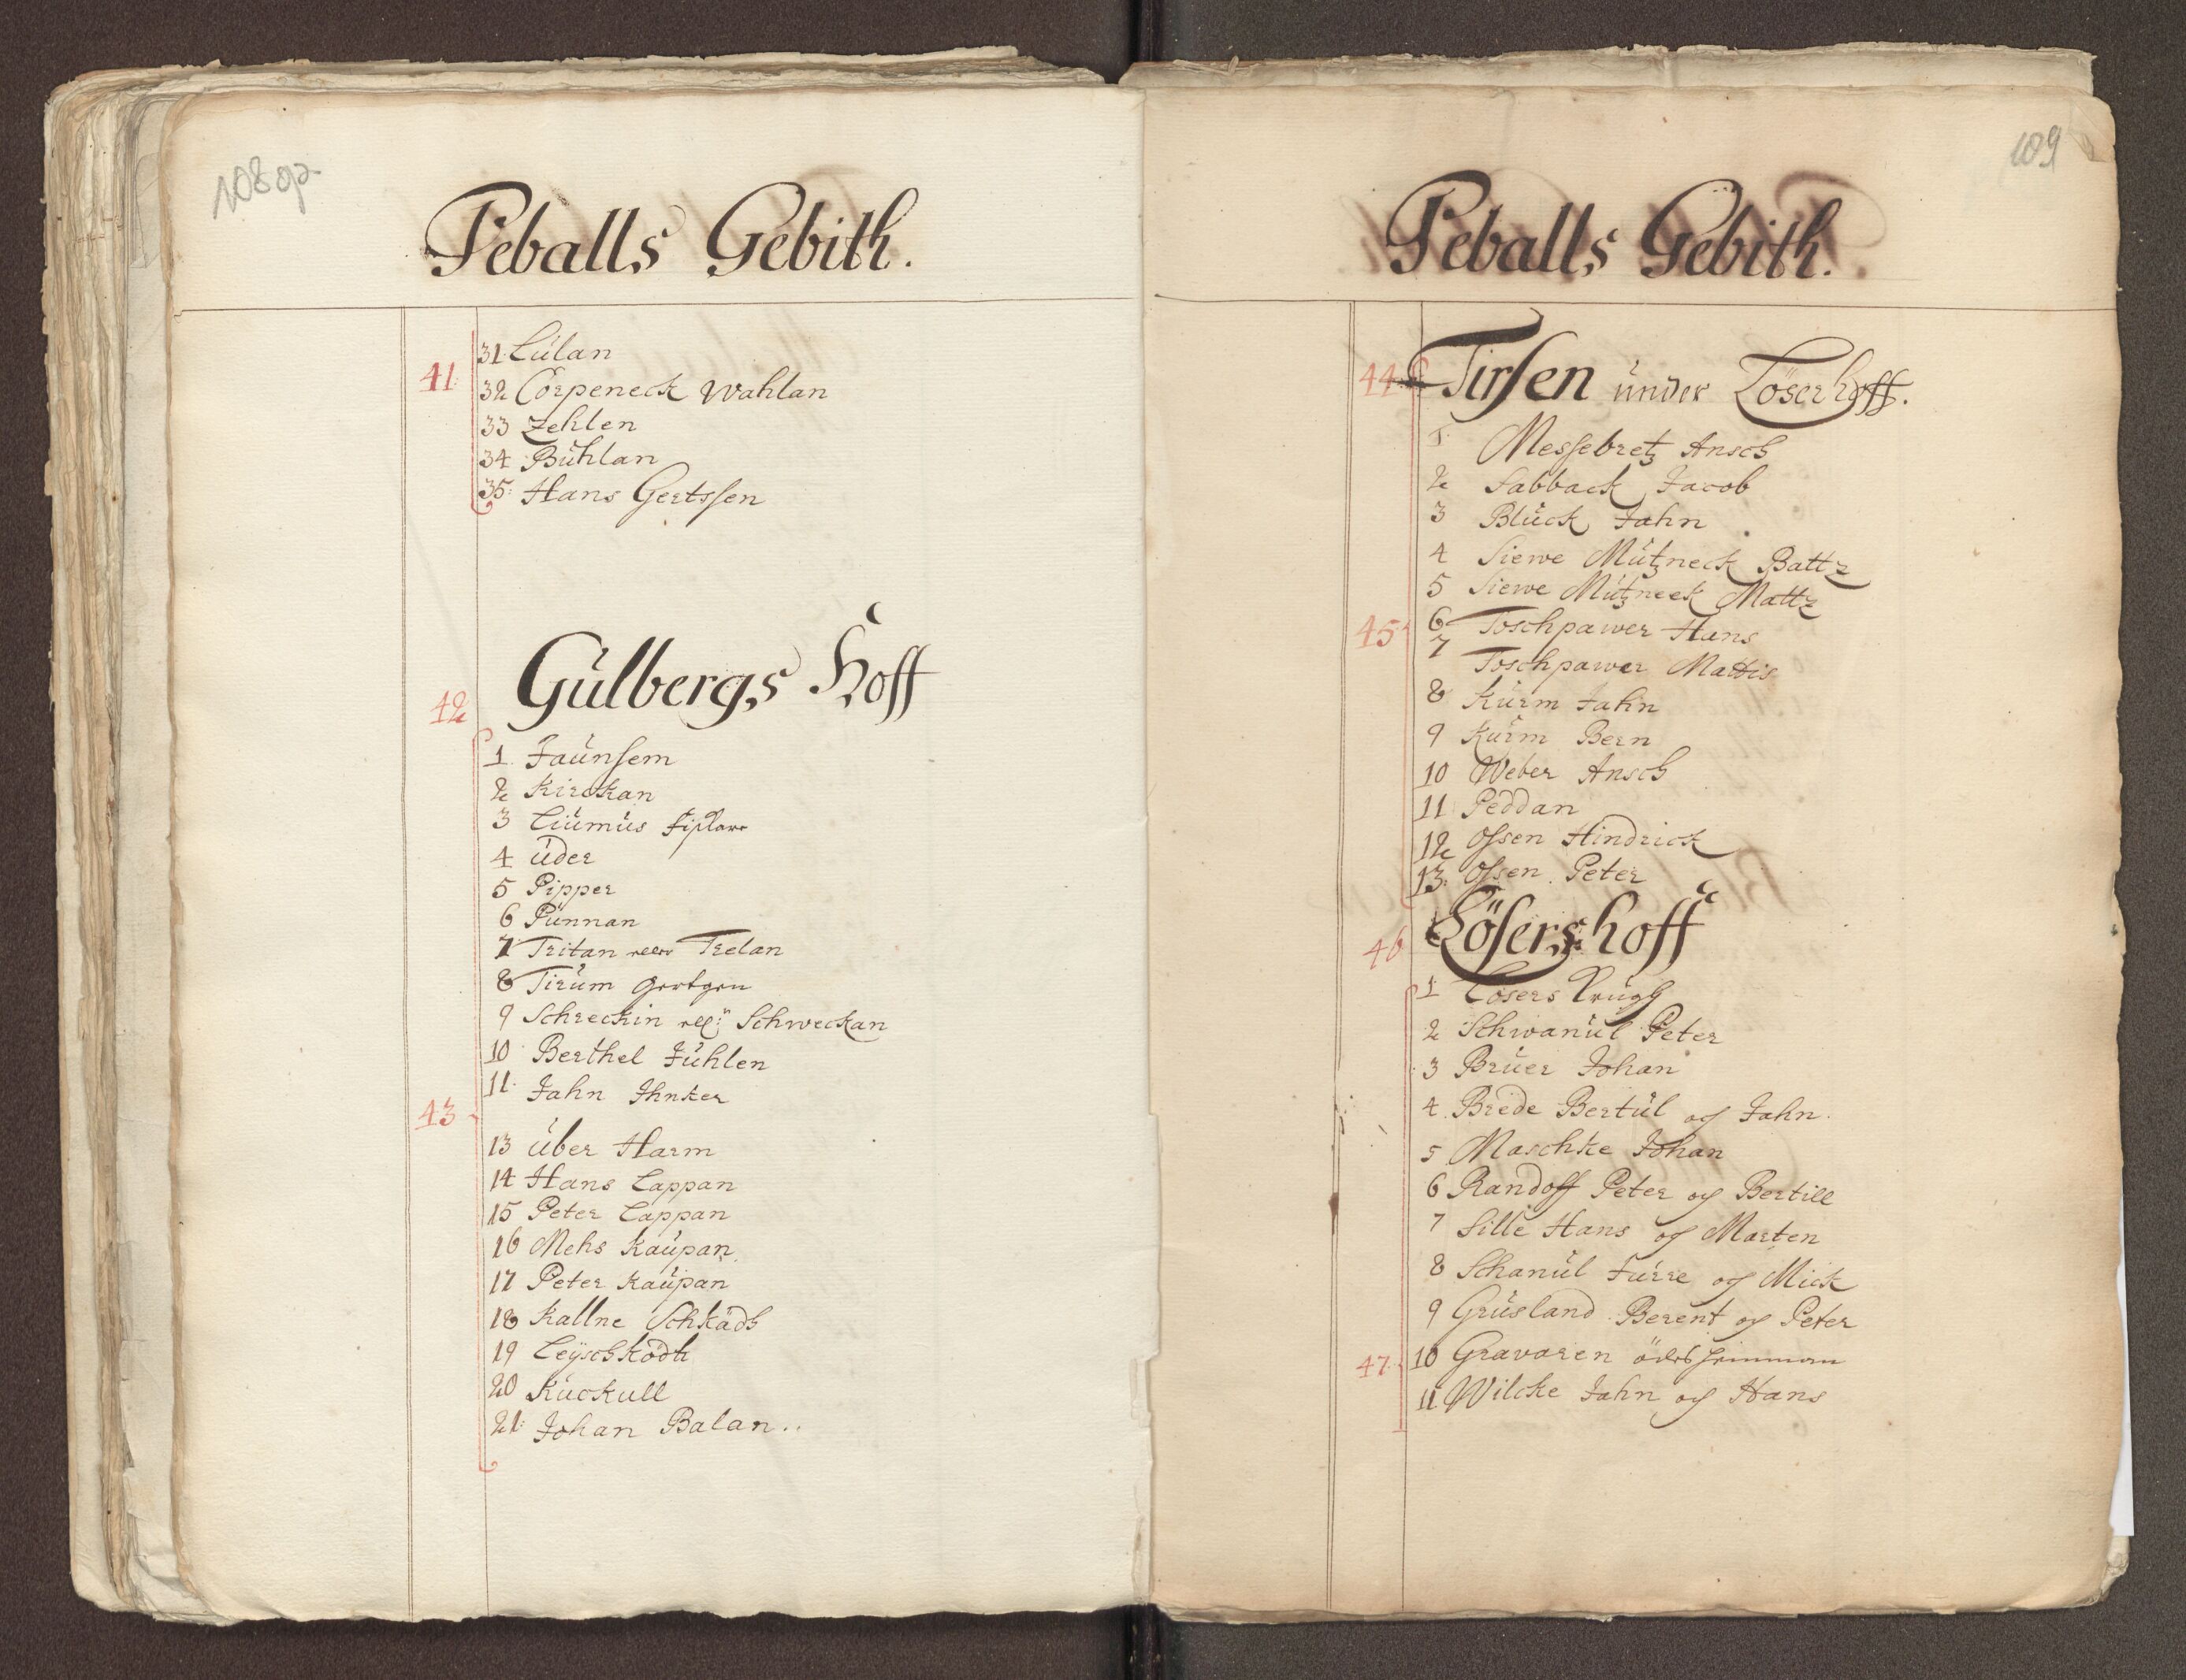 108 op
Peballs Gebith.
41
31: Lülan
32 Corpeneck Wahlan
33 Zehlen
34 Bühlan
35: Hans Gertssen
42
Gülbergs Hoff
1. Jaünsem
2 Kirckan
3 Liümüs
4 üder
5 Pipper
6 Pünnan
7 Tritan eller Trelan
8 Tirüm Gertgen
9 Schreckin ell: Schweckan
10 Berthel Jühlen
11. Jahn Ihnker
43
13 über Harm
14 Hans Lappan
15 Peter Lappan
16 Mehs Kaüpan
17 Peter Kaüpan
18 Kallne Schkädh
19 Leÿschködh
20 Kückull
21: Johan Balan..
109
Peballs Gebith.
44
Tirsen ünder Löserhoff.
1. Messebretz Ansch
2 Sabback Jacob
3 Blück Jahn
4 Siewe Mützneck Battz
5 Siewe Mützneck Mattz
45
6 Toschpawer Hans
7 Toschpawer Mattis
8 Kürm Jahn
9 Kürm Bern
10 Weber Ansch
11 Peddan
12 Ossen Hindrick
13: Ossen Peter
46
Lösershoff
1 Lösers Krügh
2 Schwanül Peter
3 Brüer Johan
4. Brede Bertül og Jahn.
5 Maschke Johan
6 Randoff Peter og Bertill
7 Sille Hans og Marten
8 Schanül Jürre og Mick
9 Grüsland Berent og Peter
47
10 Gravaren ödes hemman
11 Wilcke Jahn og Hans